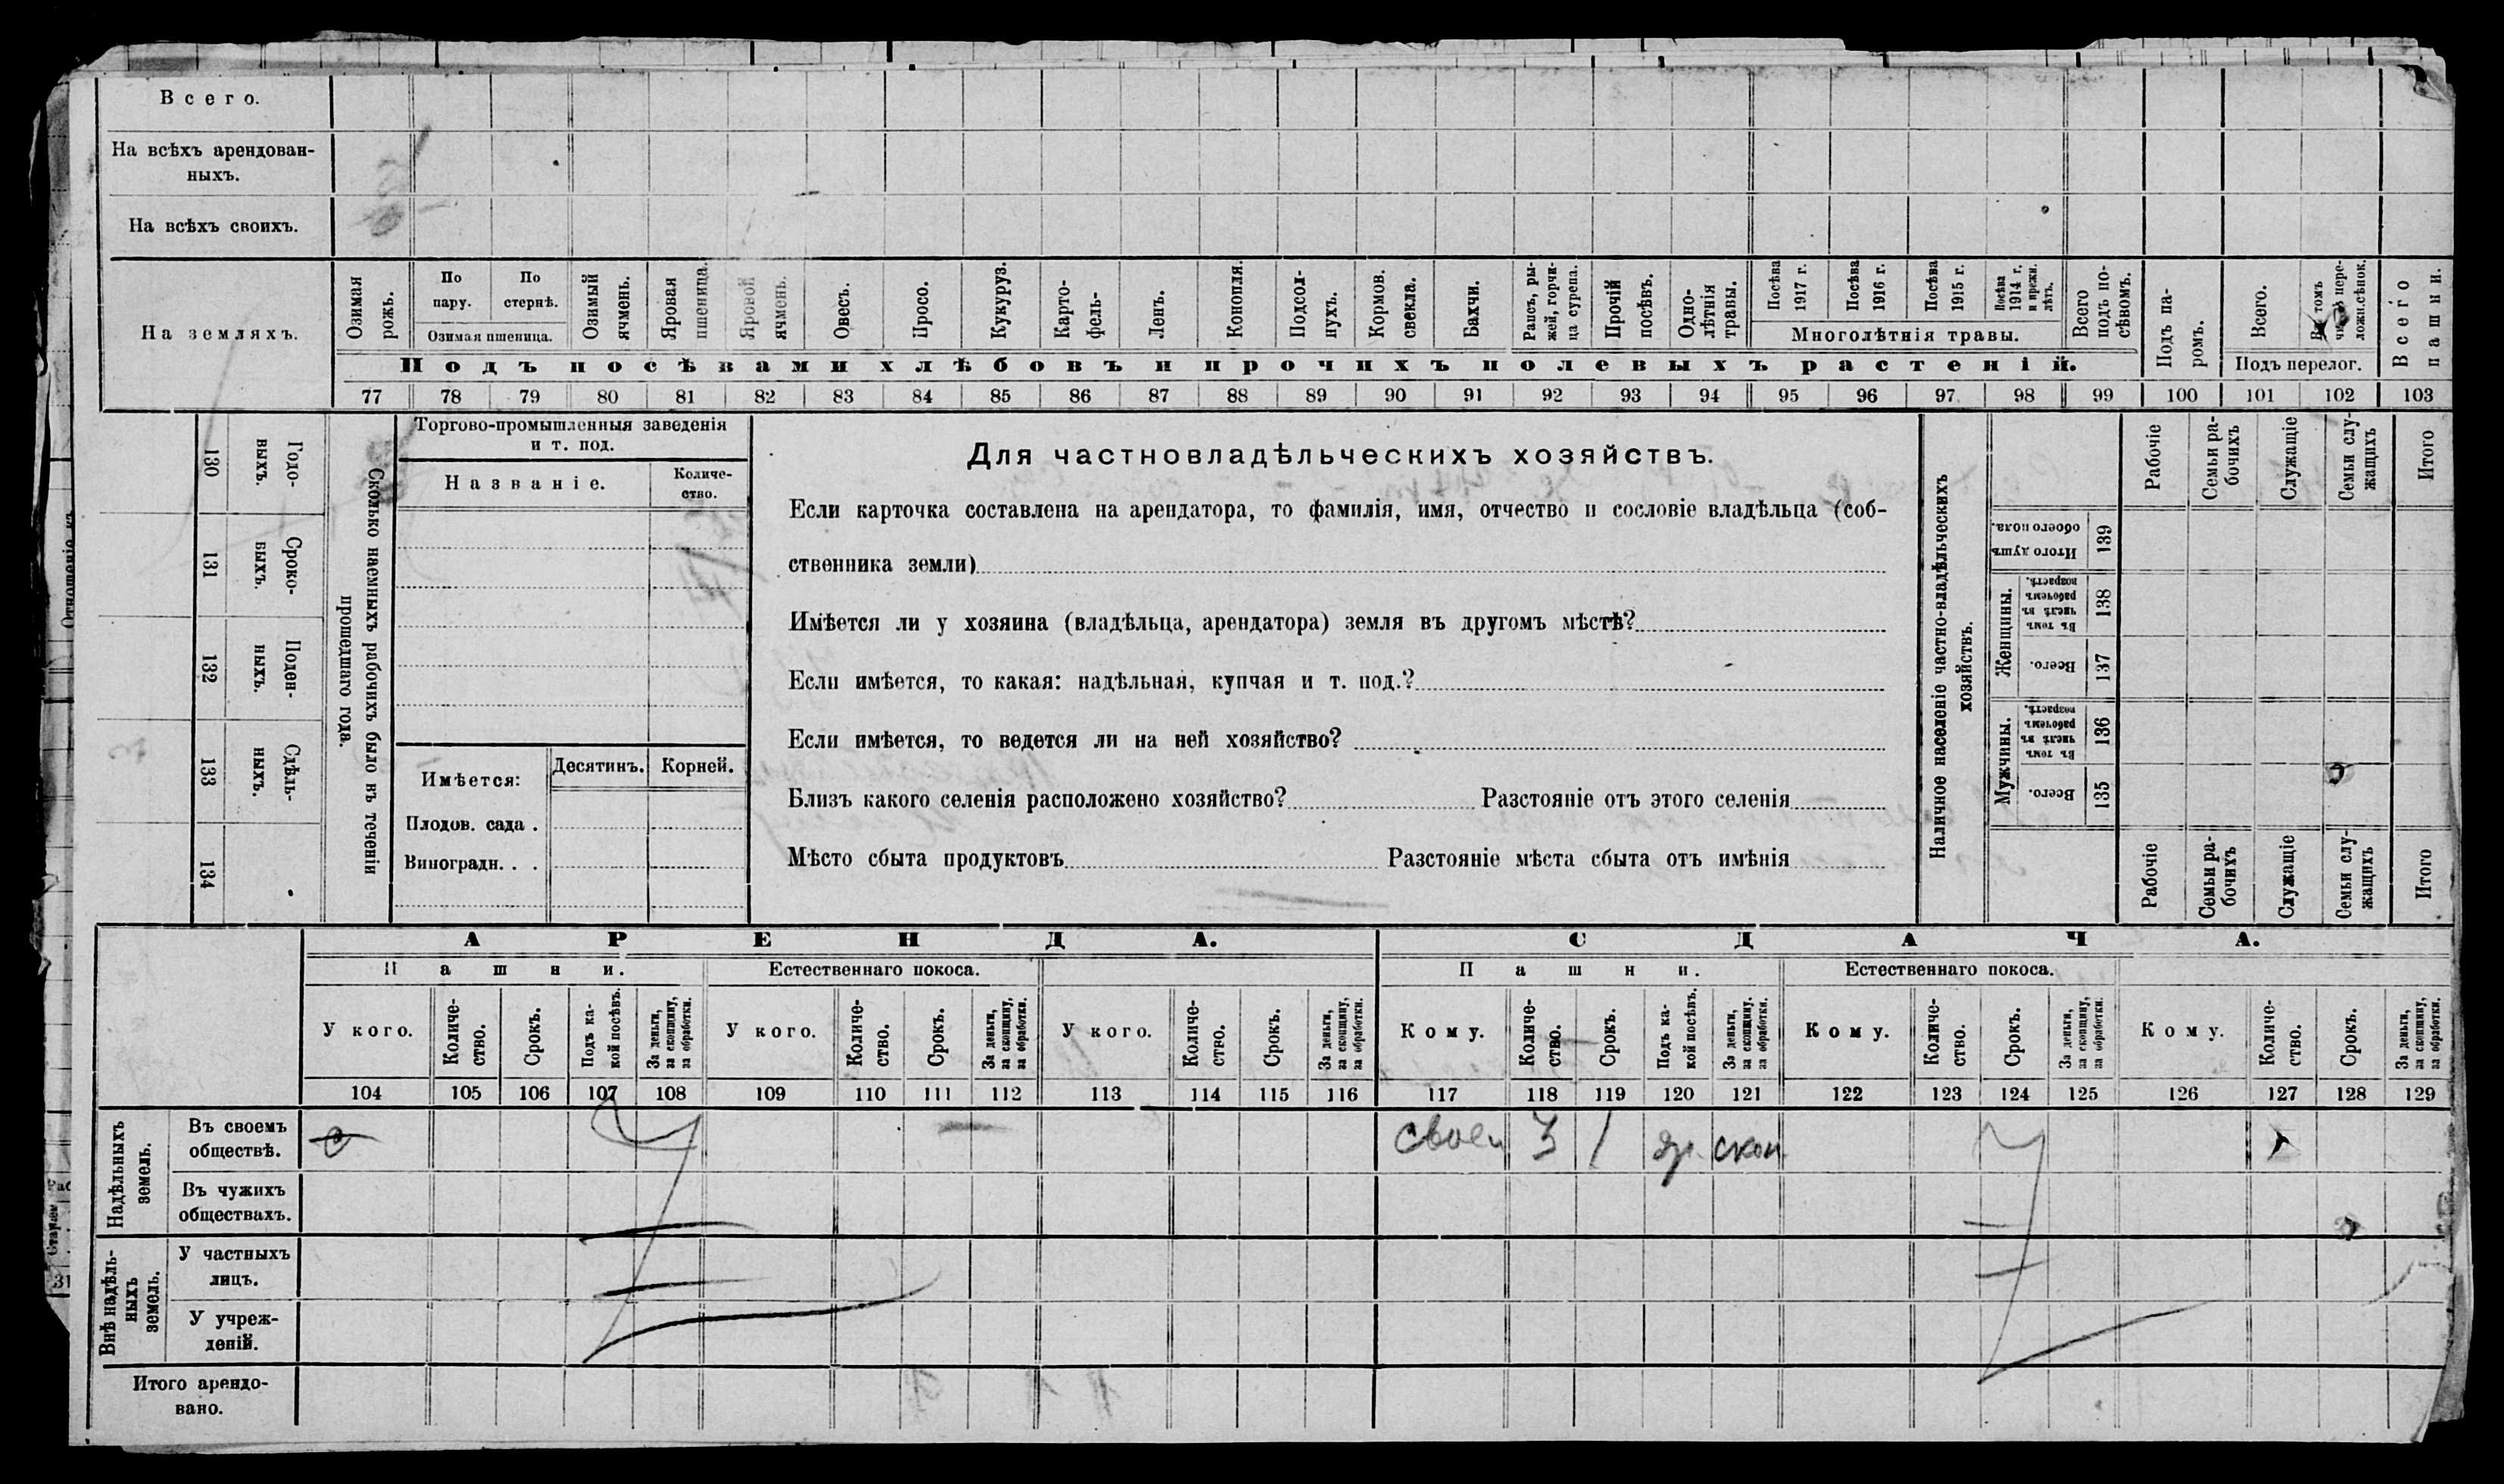 Всего.
На всѣхъ арендован-
ныхъ.
На всѣхъ своихъ.
На земляхъ.
Озимая рожь.
По пару.
По стернѣ.
Озимая пшеница.
Озимый ячмень.
Яровая пшеница.
Яровой ячмень.
Овесъ.
Просо.
Кукуруз.
Карто-
фель-
Ленъ.
Конопля.
Подсол-
нухъ.
Кормов. свекла.
Бахчи.
Рапсъ, ры-
жей, горчи-
ца сурепа.
Прочій посѣвъ.
Одно-
лѣтнія травы.
Посѣва 1917 г.
Посѣва 1916 г.
Посѣва 1915 г.
Посѣва 1914 г. и прежн. лѣтъ.
Многолѣтнія травы.
Всего подъ по-
сѣвомъ.
Подъ па-
ромъ.
Всего.
Въ томъ числѣ пере-
ложн.сѣнок.
Подъ перелог.
Всего пашни.
Подъ посѣвами хлѣбовъ и прочихъ полевыхъ растеній.
77 78 79 80 81 82 83 84 85 86 87 88 89 90 91 92 93 94 95 96 97 98 99 100 101 102 103
130 Годо-
выхъ.
131 Сроко-
выхъ.
132 Поден-
ныхъ.
133 Сдѣль-
ныхъ.
134
Сколько наемныхъ рабочихъ было въ теченіи
прошедшаго года.
Торгово-промышленныя заведенія
и т. под.
Названіе.
Количе-
ство.
Имѣется:
Десятинъ.
Корней.
Плодов. сада .
Виноградн. . .
Для частновладѣльческихъ хозяйствъ.
Если карточка составлена на арендатора, то фамилія, имя, отчество и сословіе владѣльца (соб-
ственника земли)
Имѣется ли у хозяина (владѣльца, арендатора) земля въ другомъ мѣстѣ?
Если имѣется, то какая: надѣльная, купчая и т. под.?
Если имѣется, то ведется ли на ней хозяйство?
Близъ какого селенія расположено хозяйство? Разстояніе отъ этого селенія
Мѣсто сбыта продуктовъ Разстояніе мѣста сбыта отъ имѣнія
Наличное населеніе частно-владѣльческихъ
хозяйствъ.
Рабочіе
Семьи ра-
бочихъ
Служащіе
Семьи слу-
жащихъ
Итого
Итого душъ обоего пола. 139
Женщины.
Въ томъ числѣ въ рабочемъ возрастѣ. 138
Всего. 137
Мужчины.
Въ томъ числѣ въ рабочемъ возрастѣ. 136
Всего. 135
Рабочіе
Семьи ра-
бочихъ
Служащіе
Семьи слу-
жащихъ
Итого
АРЕНДА.
СДАЧА.
Пашни.
Естественнаго покоса.
Пашни.
Естественнаго покоса.
У кого.
Количе-
ство.
Срокъ.
Подъ ка-
кой посѣвъ.
За деньги, за скопщину, за обработки.
У кого.
Количе-
ство.
Срокъ.
За деньги, за скопщину, за обработки.
У кого.
Количе-
ство.
Срокъ.
За деньги, за скопщину, за обработки.
Кому.
Количе-
ство.
Срокъ.
Подъ ка-
кой посѣвъ.
За деньги, за скопщину, за обработки.
Кому.
Количе-
ство.
Срокъ.
За деньги, за скопщину, за обработки.
Кому.
Количе-
ство.
Срокъ.
За деньги, за скопщину, за обработки.
104 105 106 107 108 109 110 111 112 113 114 115 116 117 118 119 120 121 122 123 124 125 126 127 128 129
Надѣльныхъ земель.
Въ своемъ
обществѣ.
своем 3 1 яр скоп
Въ чужихъ
обществахъ.
Внѣ надѣль-
ныхъ земель.
У частныхъ
лицъ.
У учреж-
деній.
Итого арендо-
вано.